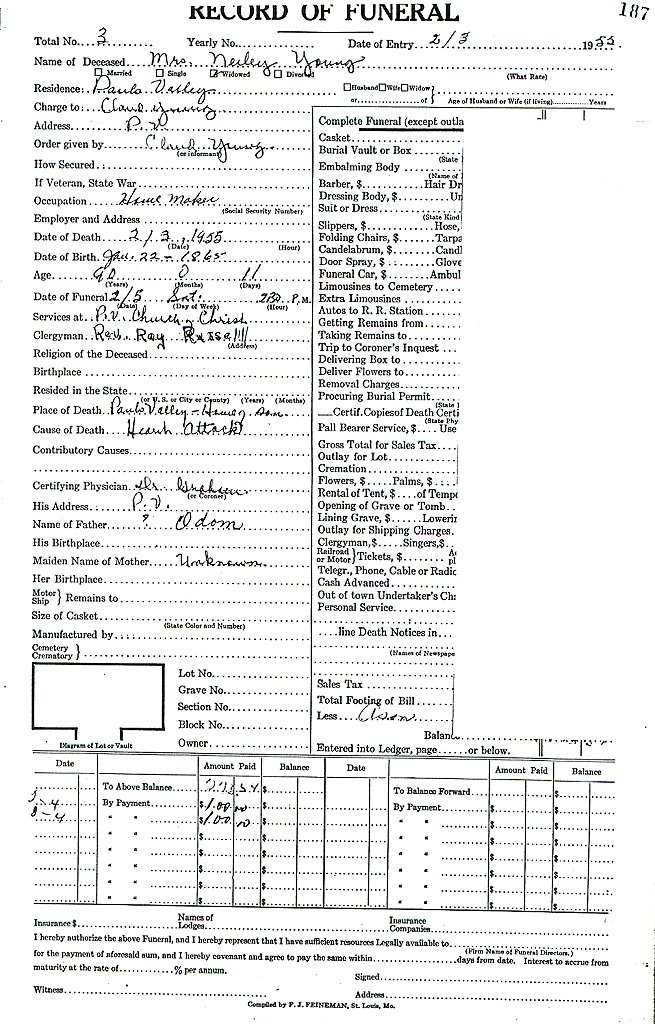 RECORD OF FUNERAL
187
Total No. 3 Yearly No. Date of Entry 2/3 1955
Name of Deceased Mrs. Neeley Young
Married Single Widowed Divorced (What Rate)
Residence: Pauls Valley Husband Wife Widow }
or of } Age of Husband or Wife (if living) Years
Charge to: Claud Young
Address P.V.
Order given by Claud Young
(or informant)
How Secured
If Veteran, State War
Occupation Home Maker
(Social Security Number)
Employer and Address
Date of Death 2/3, 1955
(Date) (Hour)
Date of Birth Jan. 22 - 1865
Age 90 0 11
(Years) (Months) (Days)
Date of Funeral 2/5 Sat. 2:30 P.M.
(Date) (Day of Week) (Hour)
Services at P.V. Church of Christ
Clergyman Rev. Ray Russell
(Address)
Religion of the Deceased
Birthplace
Resided in the State
(or U. S. or City or County) (Years) (Months)
Place of Death Pauls Valley - Home of Son
Cause of Death Heart Attack
Contributory Causes
Certifying Physician Dr.
(or Coroner)
His Address P.V.
Name of Father ? Odom
His Birthplace
Maiden Name of Mother Unknown
Her Birthplace
Motor Ship } Remains to
Size of Casket
(State Color and Number)
Manufactured by
Cemetery
Crematory }
Lot No.
Grave No.
Section No.
Block No.
Owner
Diagram of Lot or Vault
Complete Funeral (except outla
Casket
Burial Vault or Box
(State
Embalming Body
(Name of
Barber, $ Hair Dr
Dressing Body, $ Un
Suit or Dress
(State Kind
Slippers, $ Hose,
Folding Chairs, $ Tarpa
Candelabrum, $ Candl
Door Spray, $ Glove
Funeral Car, $ Ambul
Limousines to Cemetery
Extra Limousines
Autos to R. R. Station
Getting Remains from
Taking Remains to
Trip to Coroner's Inquest
Delivering Box to
Deliver Flowers to
Removal Charges
Procuring Burial Permit
(State
Certif. Copies of Death Certi
(State Phy
Pall Bearer Service, $ Use
Gross Total for Sales Tax
Outlay for Lot
Cremation
Flowers, $ Palms, $
Rental of Tent, $ of Temp
Opening of Grave or Tomb
Lining Grave, $ Lowerin
Outlay for Shipping Charges
Clergyman, $ Singers, $
Railroad or Motor } Tickets, $
Telegr., Phone, Cable or Radio
Cash Advanced
Out of town Undertaker's Ch
Personal Service
line Death Notices in
(Names of Newspape
Sales Tax
Total Footing of Bill
Less
Balanc
Entered into Ledger, page or below.
Date Amount Paid Balance Date Amount Paid Balance
To Above Balance $ To Balance Forward $
By Payment $ 100 00 By Payment $
8-4 " " $ 100 00 " " $
" " $ " " $
" " $ " " $
" " $ " " $
" " $ " " $
" " $ " " $
Insurance $ Names of Lodges Insurance Companies
I hereby authorize the above Funeral, and I hereby represent that I have sufficient resources Legally available to
(Firm Name of Funeral Directors.)
for the payment of aforesaid sum, and I hereby covenant and agree to pay the same within days from date. Interest to accrue from
maturity at the rate of % per annum.
Signed
Witness Address
Compiled by F. J. FEINEMAN, St. Louis, Mo.